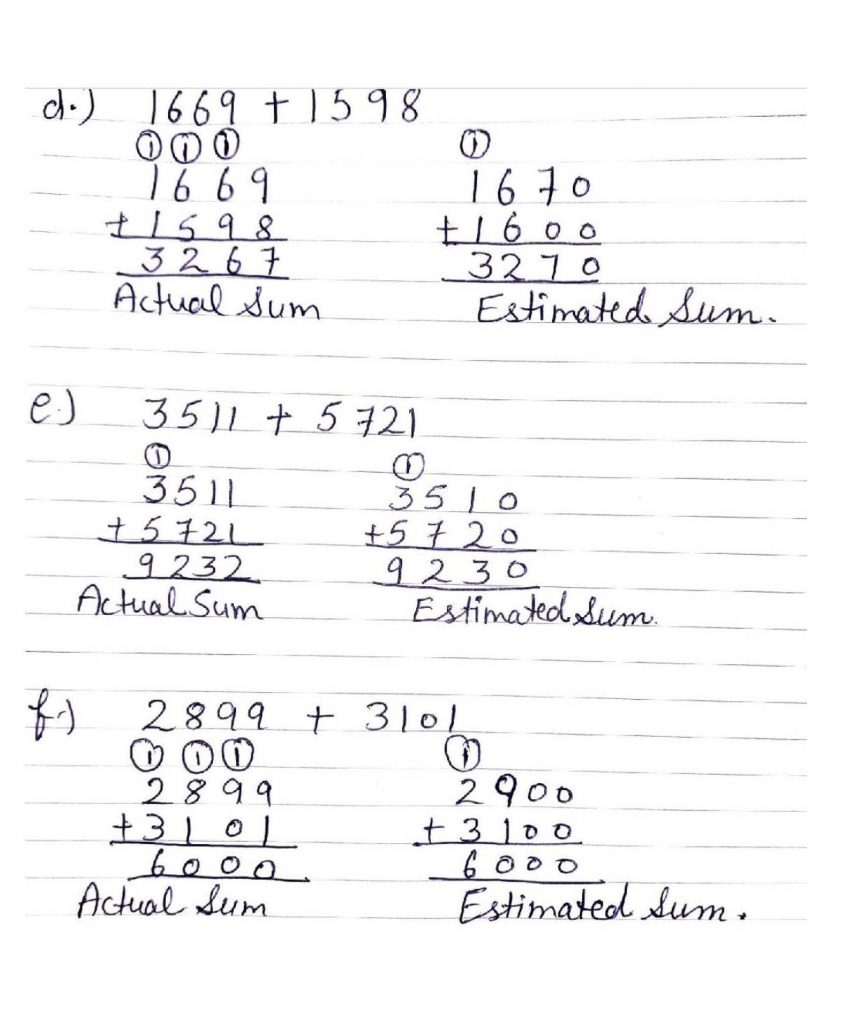 d.) 1669 + 1598
① ① ① ①
1669 1670
+1598 +1600
3267 3270
Actual Sum Estimated Sum.
e.) 3511 + 5721
① ①
3511 3510
+5721 +5720
9232 9230
Actual Sum Estimated Sum.
f.) 2899 + 3101
① ① ① ①
2899 2900
+3101 +3100
6000 6000
Actual Sum Estimated Sum.